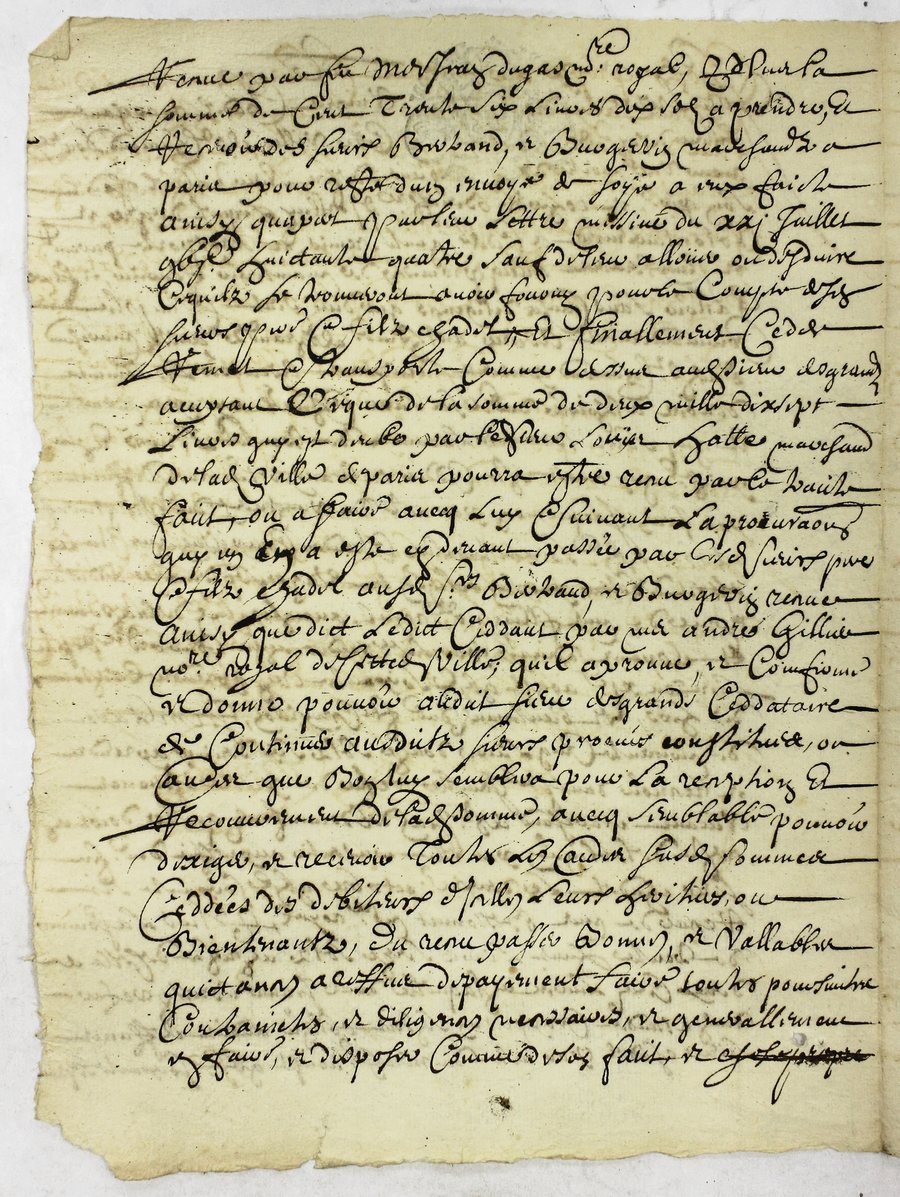 Receue par feu Me Jean dugas no.re royal, Et de la
somme de Cent Trente six Livres dix solz a prendre, Et
Recevoir des sieurs Brebaud, et Burgevin marchandz a
paris pour reste d'un envoye de soye a eux faicte
ainsy quapert par leur lettre missive du xxj Juillet
huictante quatre sauf de leur allouer ou desduire
Cequilz se trouveront avoir fourny pour le Compte desd
sieurs pere & filz chadel Et finallement Cedde
Remet & transporte Comme dessus audsieur desgrand
aceptant Cequi de la somme de deux mille dixsept
Livres quy est deube par le sieur Louys Halle marchand
delad Ville de paris pourra estre receu par le traite
fait, ou a faire avecq Luy & suivant La procuraon
quy en a este cy devant passée par lesd sieurs pere
& filz chadel ausd srs Brebaud, et Burgevin receue
ainsy que dict Ledict Ceddant par me andré Gillier
no.re royal de cette Ville, quil aprouve, et Confirme
et donne pouvoir audit sieur desgrand Ceddataire
de Continuer ausditz sieurs procurs constitues, ou
autres que bon luy semblera pour La reception Et
Recouvrement deladsomme, avecq semblable pouvoir
dexiger, et recevoir Toutes Les autres susd sommes
Ceddées des debiteurs d'icelles Leurs heritiers, ou
Bientenantz, Du receu passer Bonnes, et Vallables
quictances a deffaut de payement faire toutes poursuittes
Contraintes, et diligences necessaires, et generallement
en faire, et disposer Comme de son fait, et